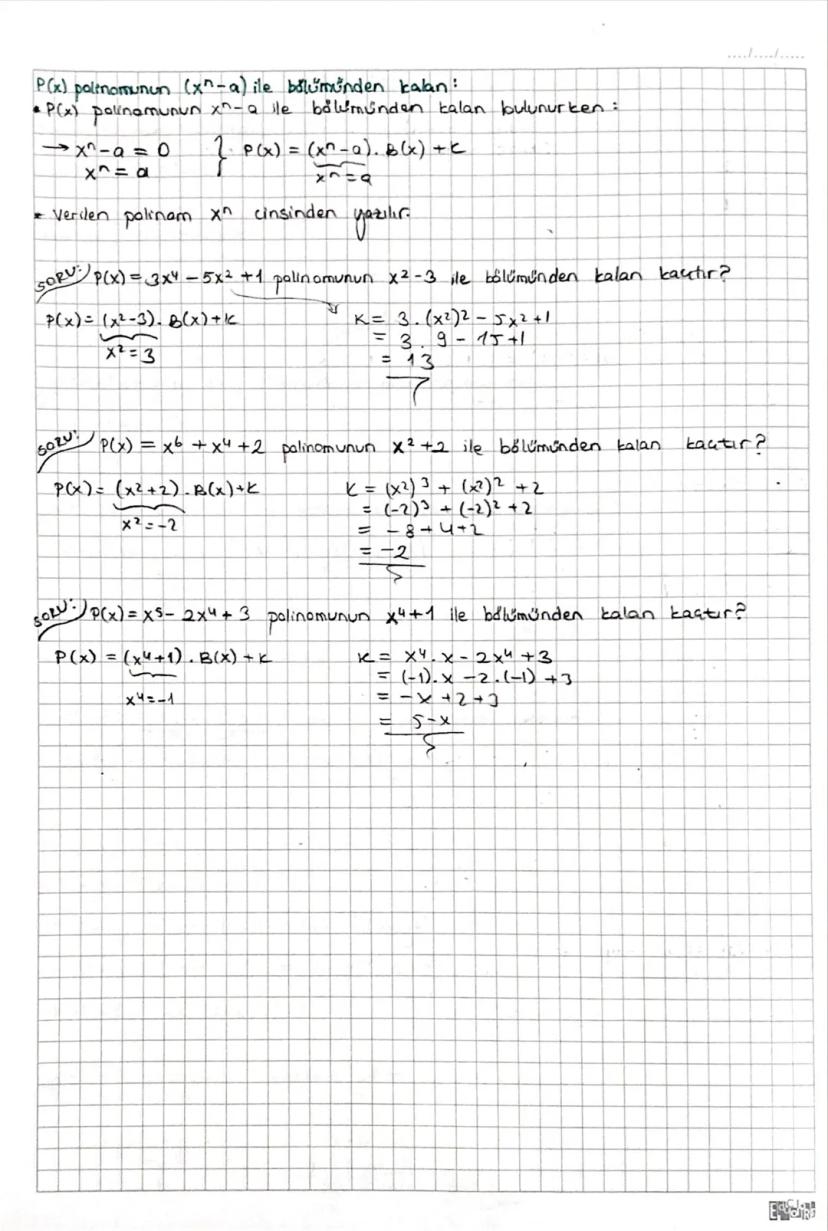 ..../..../.....
P(x) polinomunun (xⁿ-a) ile bölümünden kalan:
• P(x) polinomunun xⁿ-a ile bölümünden kalan bulunurken:
→ xⁿ-a = 0 } P(x) = (xⁿ-a). B(x) + K
xⁿ = a xⁿ=a
• Verilen polinom xⁿ cinsinden yazılır.
SORU: P(x) = 3x⁴ - 5x² + 1 polinomunun x²-3 ile bölümünden kalan kaçtır?
P(x) = (x²-3). B(x)+K K = 3.(x²)² - 5x²+1
x² = 3 = 3.9 - 15+1
= 13
SORU: P(x) = x⁶ + x⁴ + 2 polinomunun x²+2 ile bölümünden kalan kaçtır?
P(x) = (x²+2). B(x)+K K = (x²)³ + (x²)² + 2
x² = -2 = (-2)³ + (-2)² + 2
= -8+4+2
= -2
SORU: P(x) = x⁵ - 2x⁴ + 3 polinomunun x⁴+1 ile bölümünden kalan kaçtır?
P(x) = (x⁴+1). B(x)+K K = x⁴.x - 2x⁴ + 3
x⁴=-1 = (-1).x - 2.(-1) + 3
= -x + 2 + 3
= 5-x